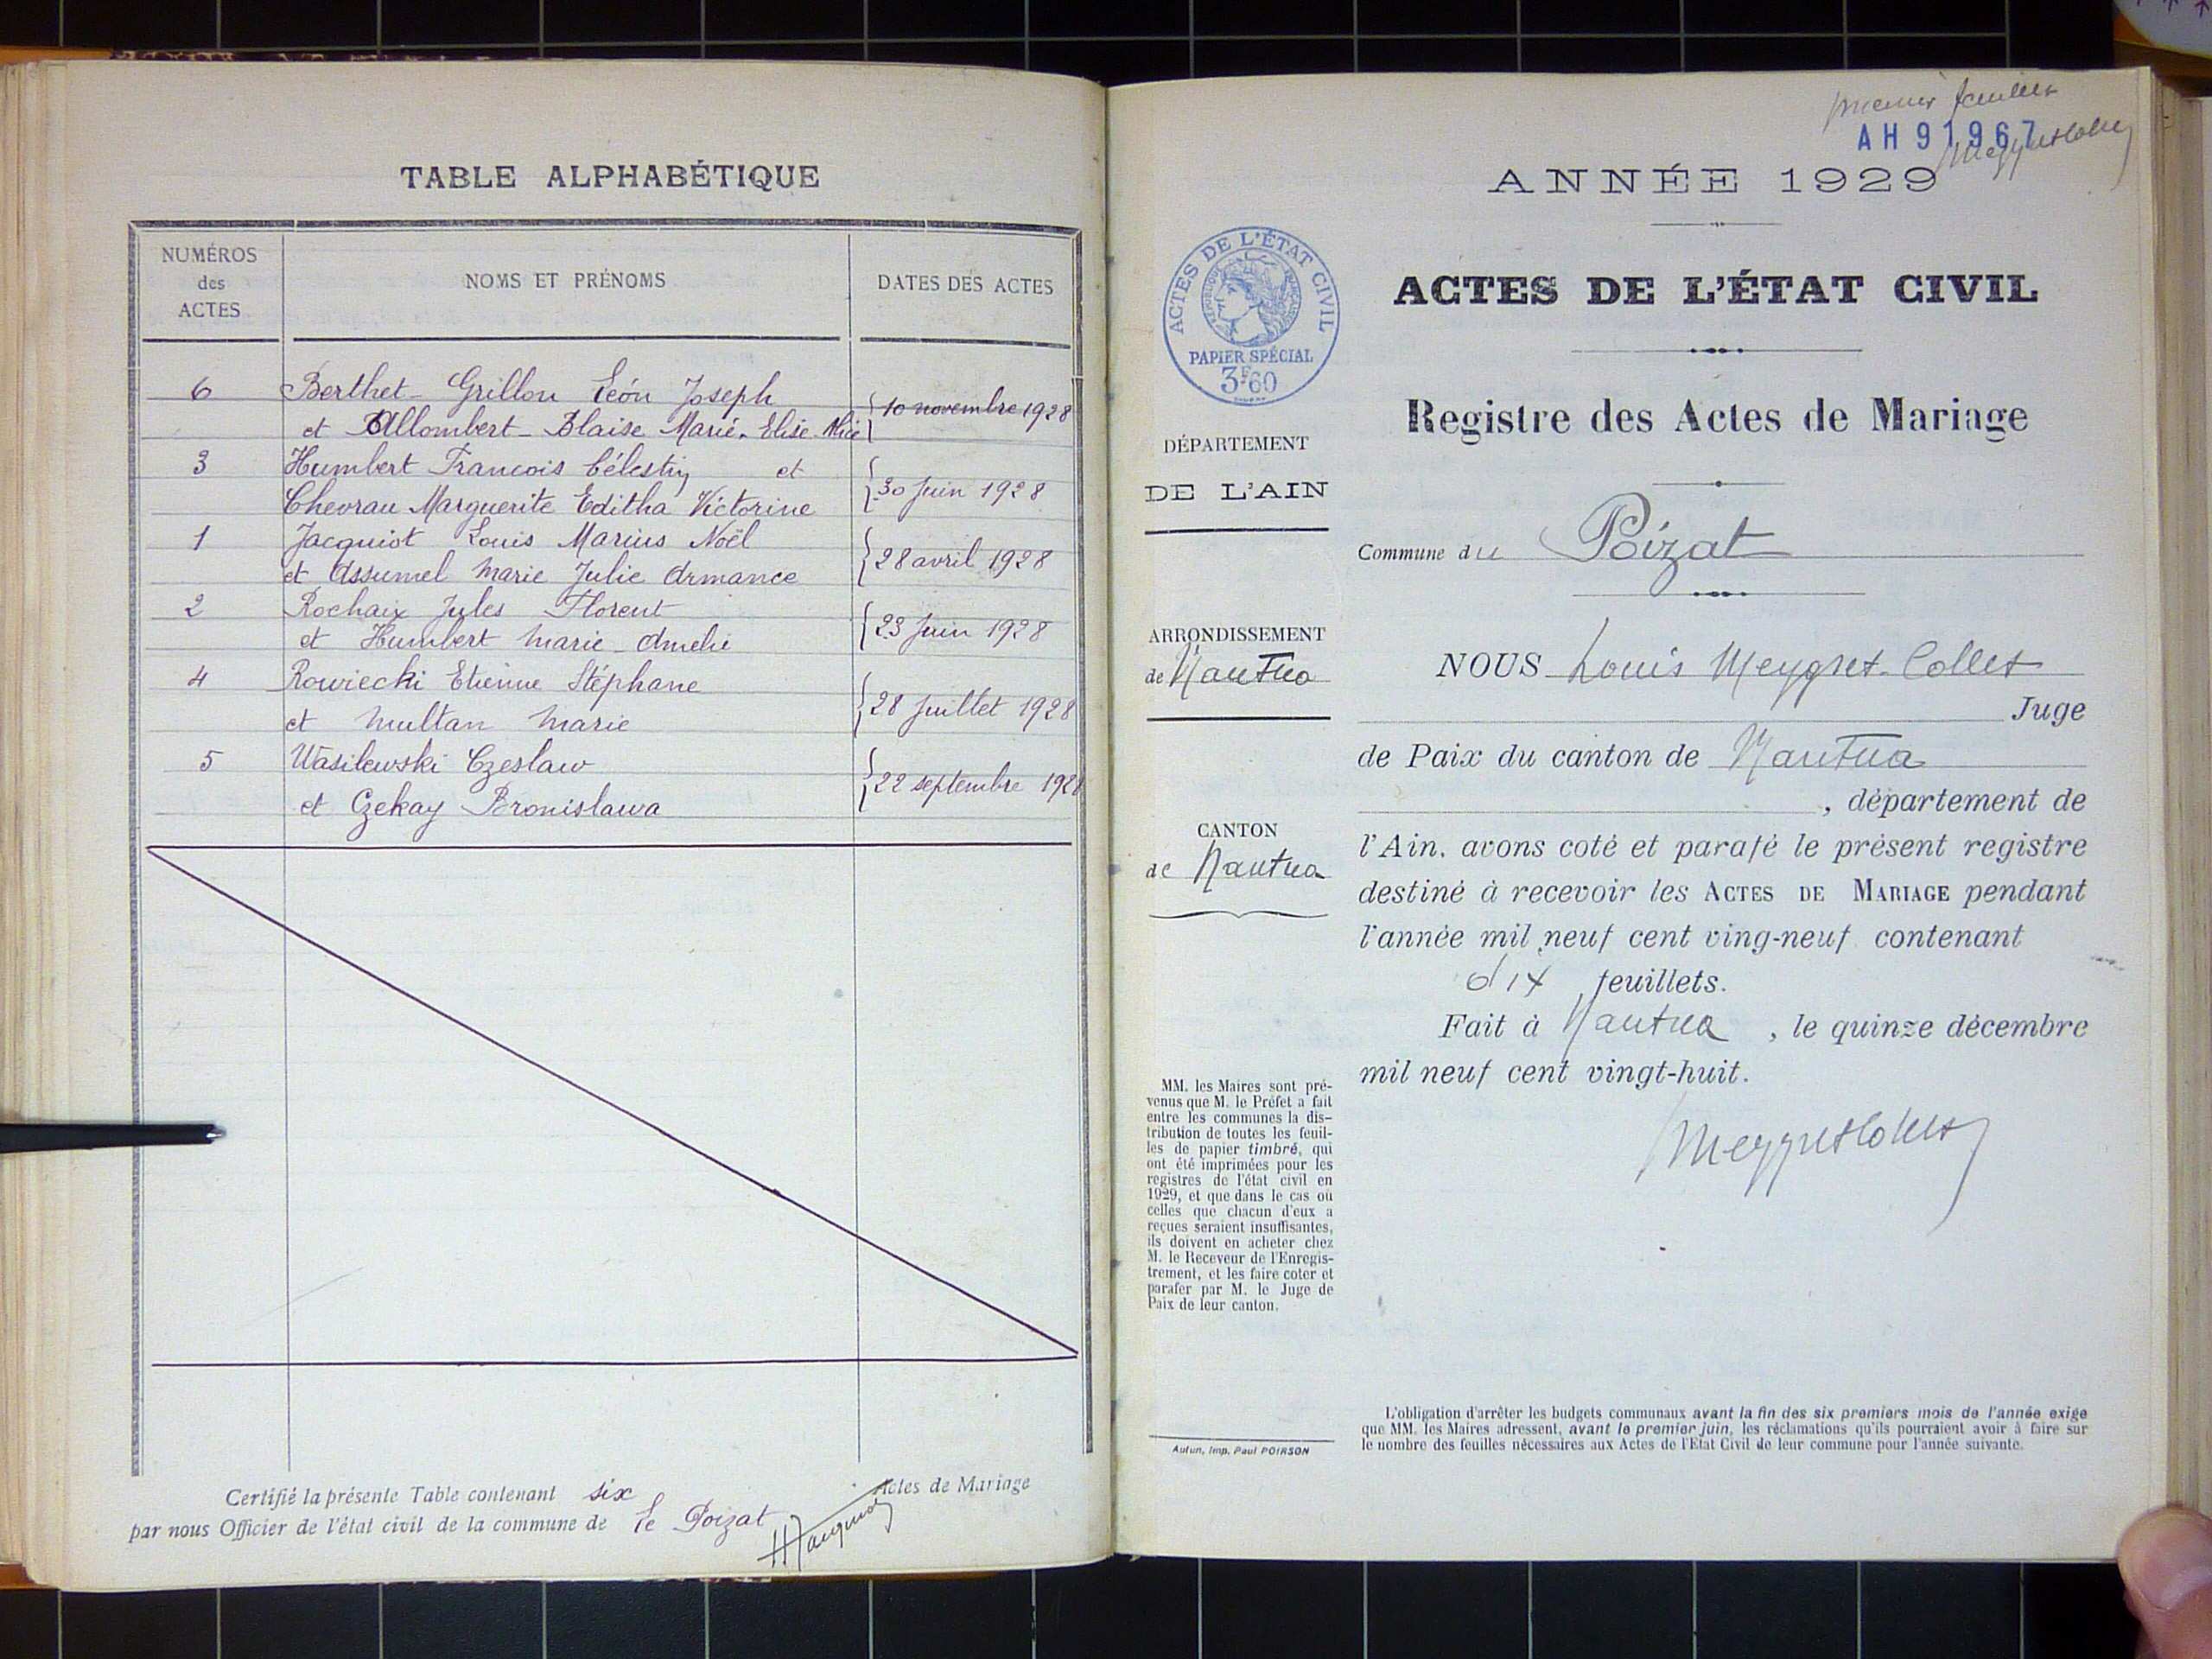 TABLE ALPHABÉTIQUE
NUMÉROS
des
ACTES
NOMS ET PRÉNOMS
DATES DES ACTES
6 Berthet-Grillon Léon Joseph
et Allombert-Blaise Marie-Elise-Alice
10 novembre 1928
3 Humbert Francois Célestin et
Chevrau Marguerite Editha Victorine
30 Juin 1928
1 Jacquiot Louis Marius Noël
et Assumel Marie Julie Armance
28 avril 1928
2 Rochaix Jules Florent
et Humbert Marie-Amélie
23 Juin 1928
4 Rowiecki Etienne Stéphane
et Multan Marie
28 Juillet 1928
5 Wasilewski Czeslaw
et Czekay Bronislawa
22 septembre 1928
Certifié la présente Table contenant six Actes de Mariage
par nous Officier de l'état civil de la commune de Le Poizat
premier feuillet
AH 91967
ANNÉE 1929
ACTES DE L'ÉTAT CIVIL
PAPIER SPÉCIAL
3F60
ACTES DE L'ÉTAT CIVIL
Registre des Actes de Mariage
DÉPARTEMENT
DE L'AIN
Commune du Poizat
ARRONDISSEMENT
de Nantua
CANTON
de Nantua
NOUS Louis Meygret-Collet
Juge
de Paix du canton de Nantua
, département de
l'Ain, avons coté et parafé le présent registre
destiné à recevoir les ACTES DE MARIAGE pendant
l'année mil neuf cent ving-neuf contenant
dix feuillets.
Fait à Nantua , le quinze décembre
mil neuf cent vingt-huit.
Meygret Collet
MM. les Maires sont pré-
venus que M. le Préfet a fait
entre les communes la dis-
tribution de toutes les feuil-
les de papier timbré, qui
ont été imprimées pour les
registres de l'état civil en
1929, et que dans le cas où
celles que chacun d'eux a
reçues seraient insuffisantes,
ils doivent en acheter chez
M. le Receveur de l'Enregis-
trement, et les faire coter et
parafer par M. le Juge de
Paix de leur canton.
Autun, Imp. Paul POIRSON
L'obligation d'arrêter les budgets communaux avant la fin des six premiers mois de l'année exige
que MM. les Maires adressent, avant le premier juin, les réclamations qu'ils pourraient avoir à faire sur
le nombre des feuilles nécessaires aux Actes de l'Etat Civil de leur commune pour l'année suivante.